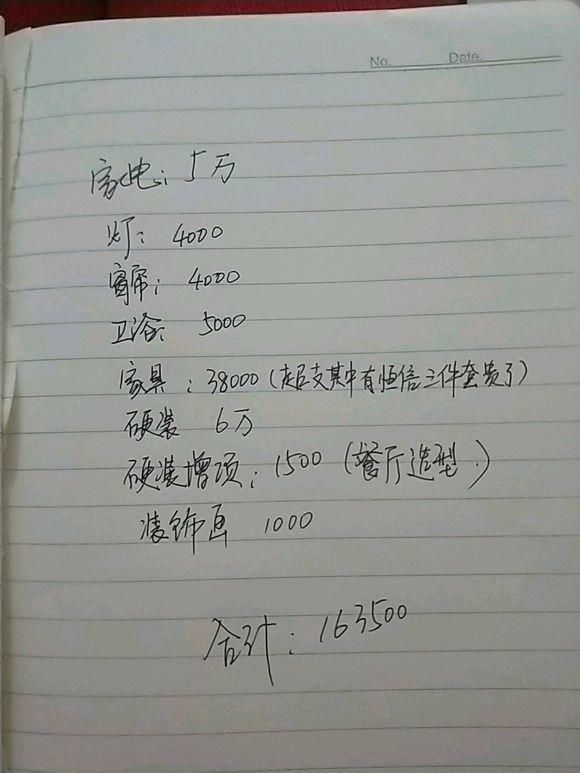 No. Date.
家电：5万
灯：4000
窗帘：4000
卫浴：5000
家具：38000（超支其中有恒信三件套贵了）
硬装 6万
硬装增项：1500（餐厅造型）
装饰画 1000
合计：163500